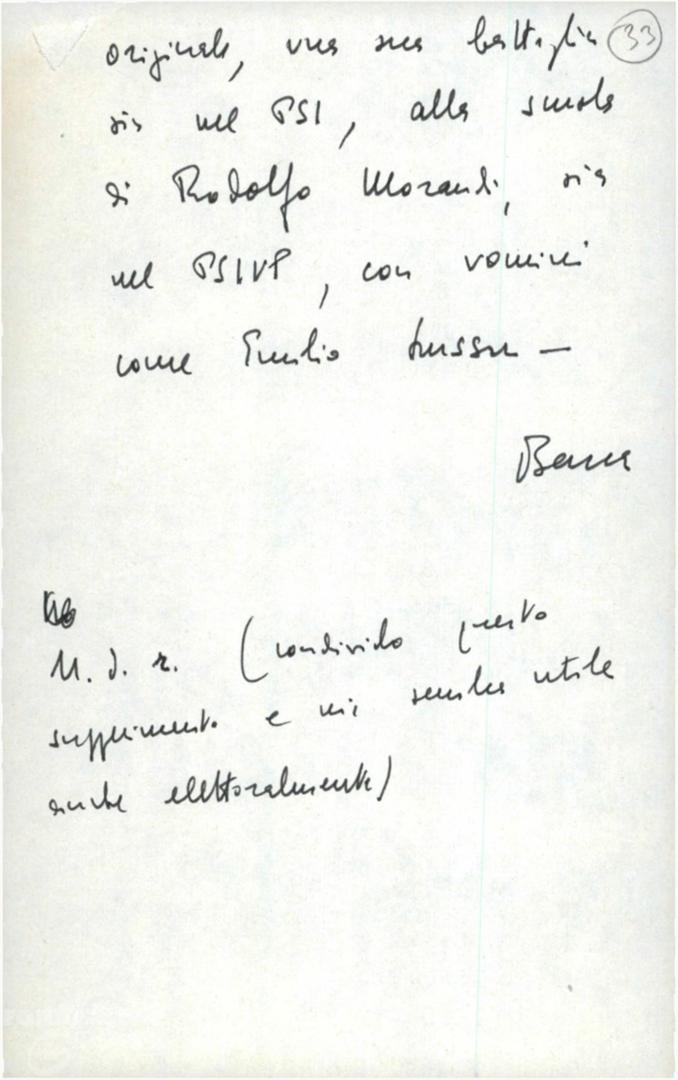 33
originale, una sua battaglia
sia nel PSI, alla scuola
di Rodolfo Morandi, sia
nel PSIUP, con uomini
come Emilio Lussu —
N. d. r. (condivido questo
suggerimento e mi sembra utile
anche elettoralmente)